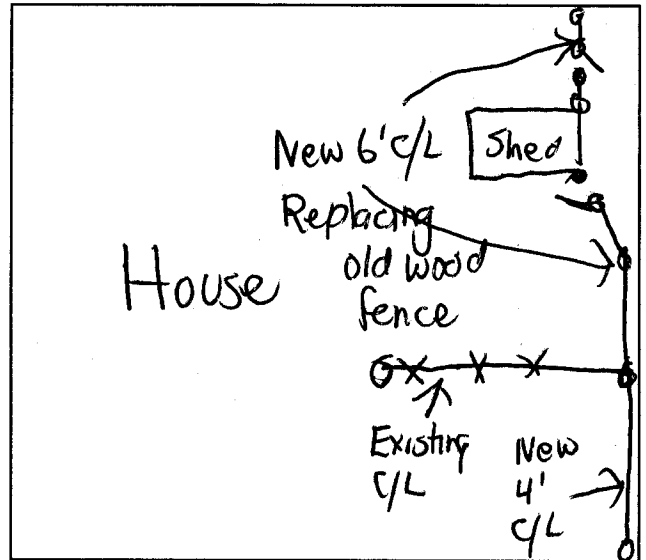 New 6' C/L
Shed
Replacing
old wood
fence
House
Existing
C/L
New
4'
C/L